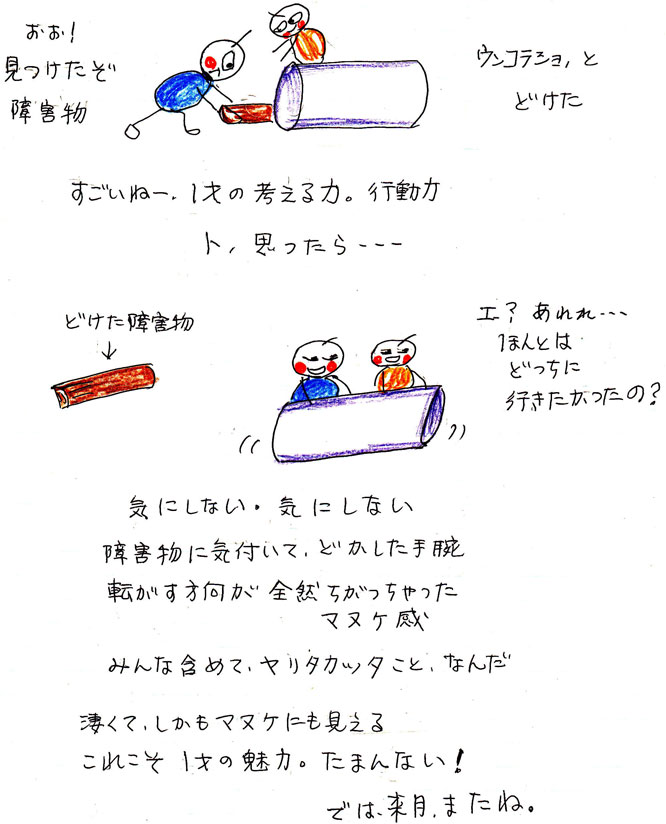 おお！
見つけたぞ
障害物
ウンコラショ，と
どけた
すごいねー，1才の考える力。行動力
ト，思ったら---
どけた障害物
エ？あれれ…
ほんとは
どっちに
行きたかったの？
気にしない・気にしない
障害物に気付いて，どかした手腕
転がす方向が全然ちがっちゃった
マヌケ感
みんな含めて，ヤリタカッタこと，なんだ
凄くて，しかもマヌケにも見える
これこそ1才の魅力。たまんない！
では，来月，またね。